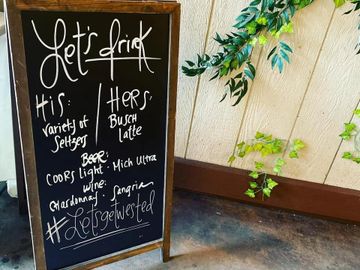 Let's drink
His: / Hers:
Variety of Seltzers
Busch Latte
Beer:
Coors Light · Mich Ultra
Wine:
Chardonnay · Sangria
#Letsgetwested